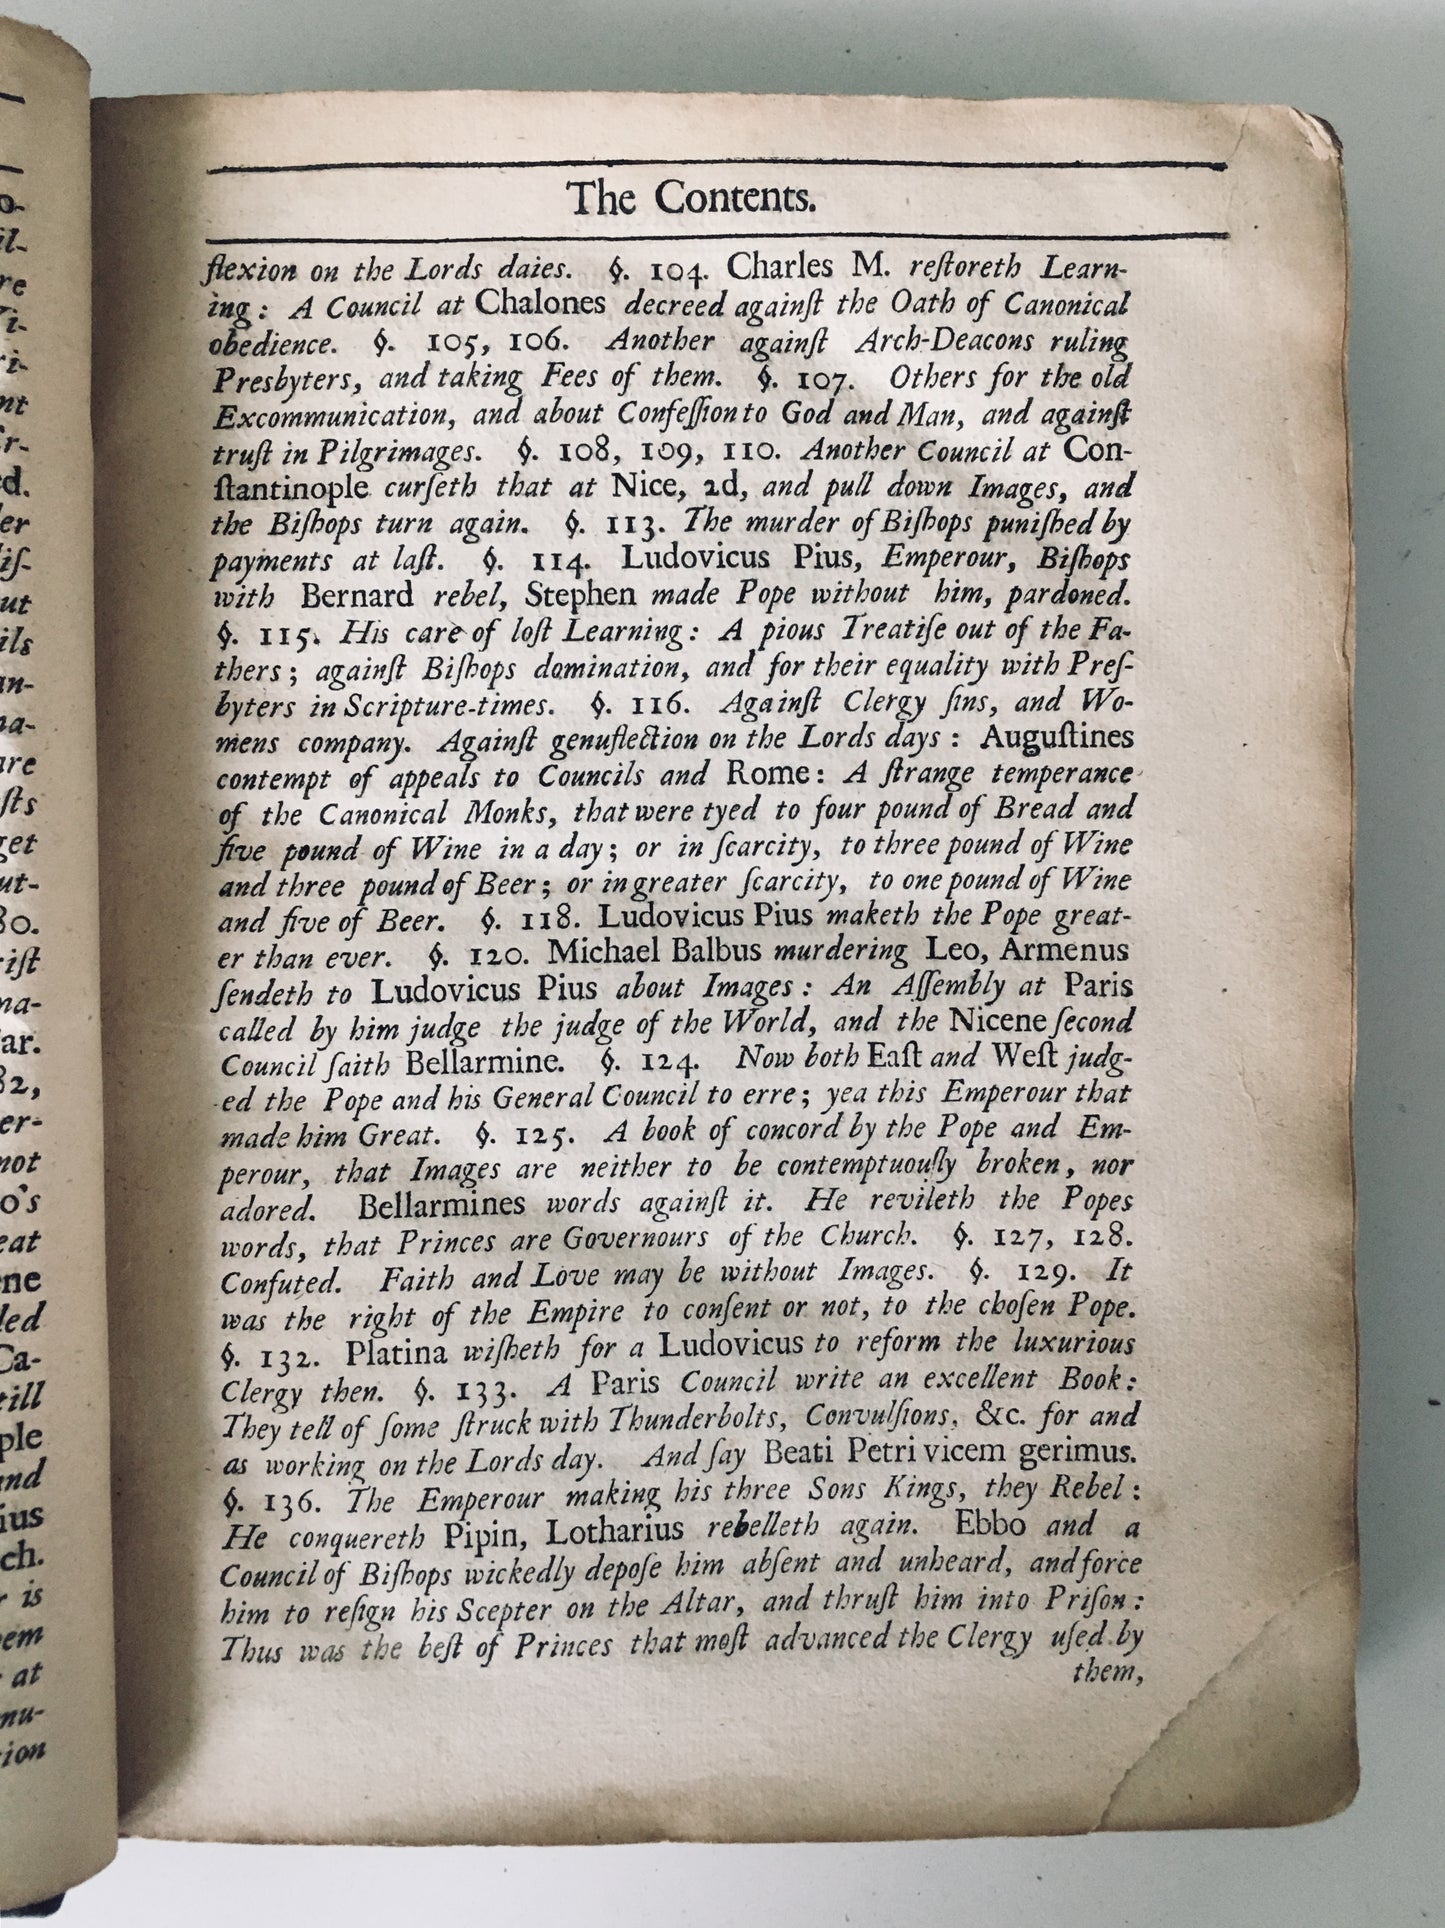 The Contents.
flexion on the Lords daies. §. 104. Charles M. reſtoreth Learn-
ing: A Council at Chalones decreed againſt the Oath of Canonical
obedience. §. 105, 106. Another againſt Arch-Deacons ruling
Presbyters, and taking Fees of them. §. 107. Others for the old
Excommunication, and about Confeſſion to God and Man, and againſt
truſt in Pilgrimages. §. 108, 109, 110. Another Council at Con-
ſtantinople curſeth that at Nice, 2d, and pull down Images, and
the Biſhops turn again. §. 113. The murder of Biſhops puniſhed by
payments at laſt. §. 114. Ludovicus Pius, Emperour, Biſhops
with Bernard rebel, Stephen made Pope without him, pardoned.
§. 115. His care of loſt Learning: A pious Treatiſe out of the Fa-
thers; againſt Biſhops domination, and for their equality with Preſ-
byters in Scripture-times. §. 116. Againſt Clergy ſins, and Wo-
mens company. Againſt genuflection on the Lords days: Auguſtines
contempt of appeals to Councils and Rome: A ſtrange temperance
of the Canonical Monks, that were tyed to four pound of Bread and
five pound of Wine in a day; or in ſcarcity, to three pound of Wine
and three pound of Beer; or in greater ſcarcity, to one pound of Wine
and five of Beer. §. 118. Ludovicus Pius maketh the Pope great-
er than ever. §. 120. Michael Balbus murdering Leo, Armenus
ſendeth to Ludovicus Pius about Images: An Aſſembly at Paris
called by him judge the judge of the World, and the Nicene ſecond
Council ſaith Bellarmine. §. 124. Now both Eaſt and Weſt judg-
ed the Pope and his General Council to erre; yea this Emperour that
made him Great. §. 125. A book of concord by the Pope and Em-
perour, that Images are neither to be contemptuouſly broken, nor
adored. Bellarmines words againſt it. He revileth the Popes
words, that Princes are Governours of the Church. §. 127, 128.
Confuted. Faith and Love may be without Images. §. 129. It
was the right of the Empire to conſent or not, to the choſen Pope.
§. 132. Platina wiſheth for a Ludovicus to reform the luxurious
Clergy then. §. 133. A Paris Council write an excellent Book:
They tell of ſome ſtruck with Thunderbolts, Convulſions, &c. for and
as working on the Lords day. And ſay Beati Petri vicem gerimus.
§. 136. The Emperour making his three Sons Kings, they Rebel:
He conquereth Pipin, Lotharius rebelleth again. Ebbo and a
Council of Biſhops wickedly depoſe him abſent and unheard, and force
him to reſign his Scepter on the Altar, and thruſt him into Priſon:
Thus was the beſt of Princes that moſt advanced the Clergy uſed by
them,